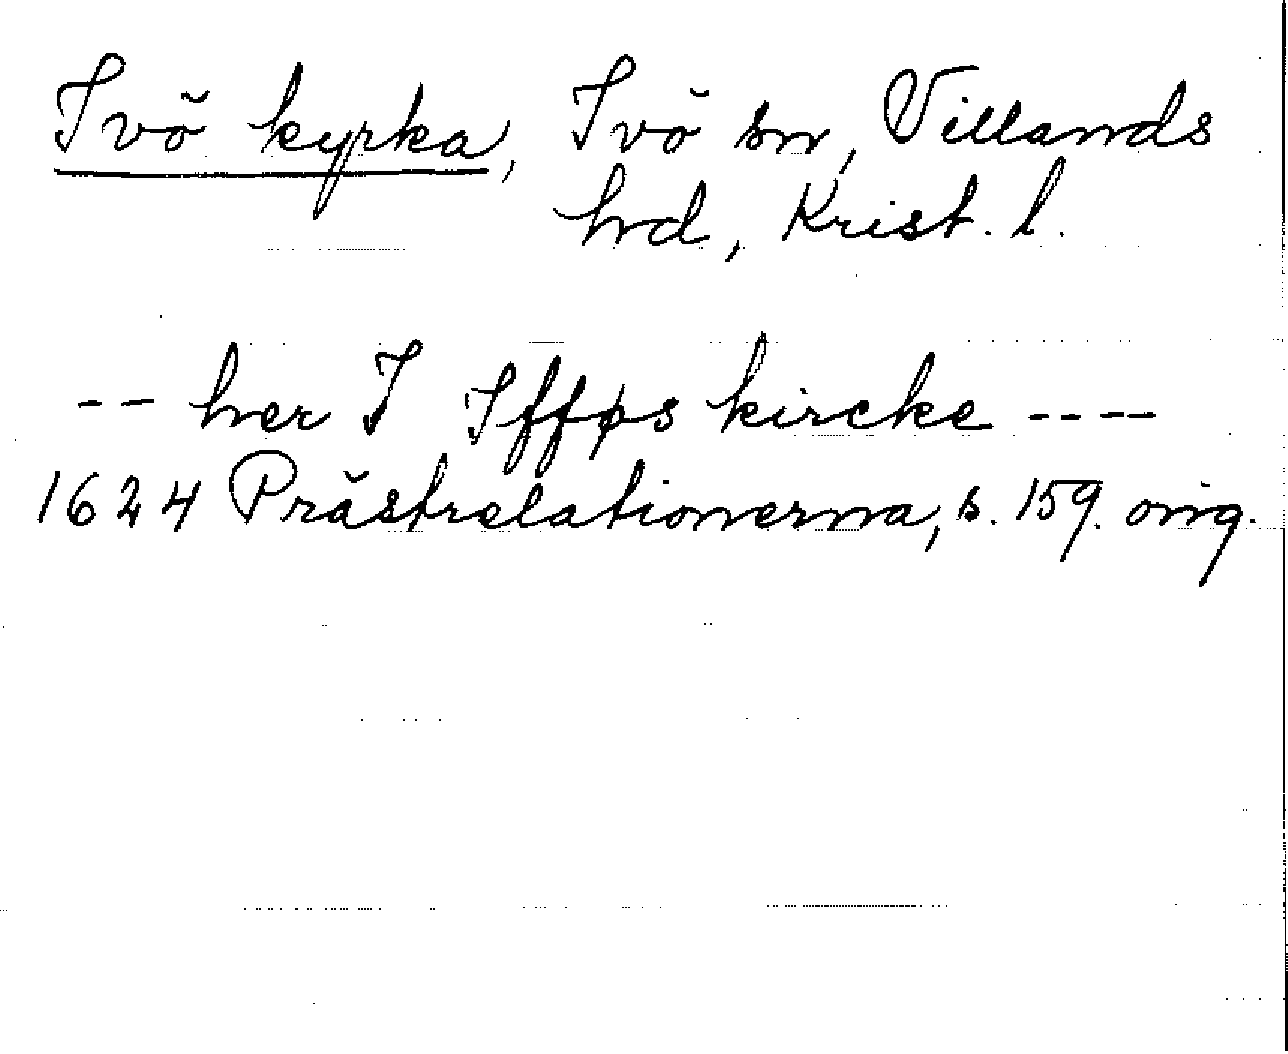 Ivö kyrka, Ivö sn, Villands
hrd, Krist. l.
-- her I Ifføs kircke ----
1624 Prästrelationerna, s. 159. orig.